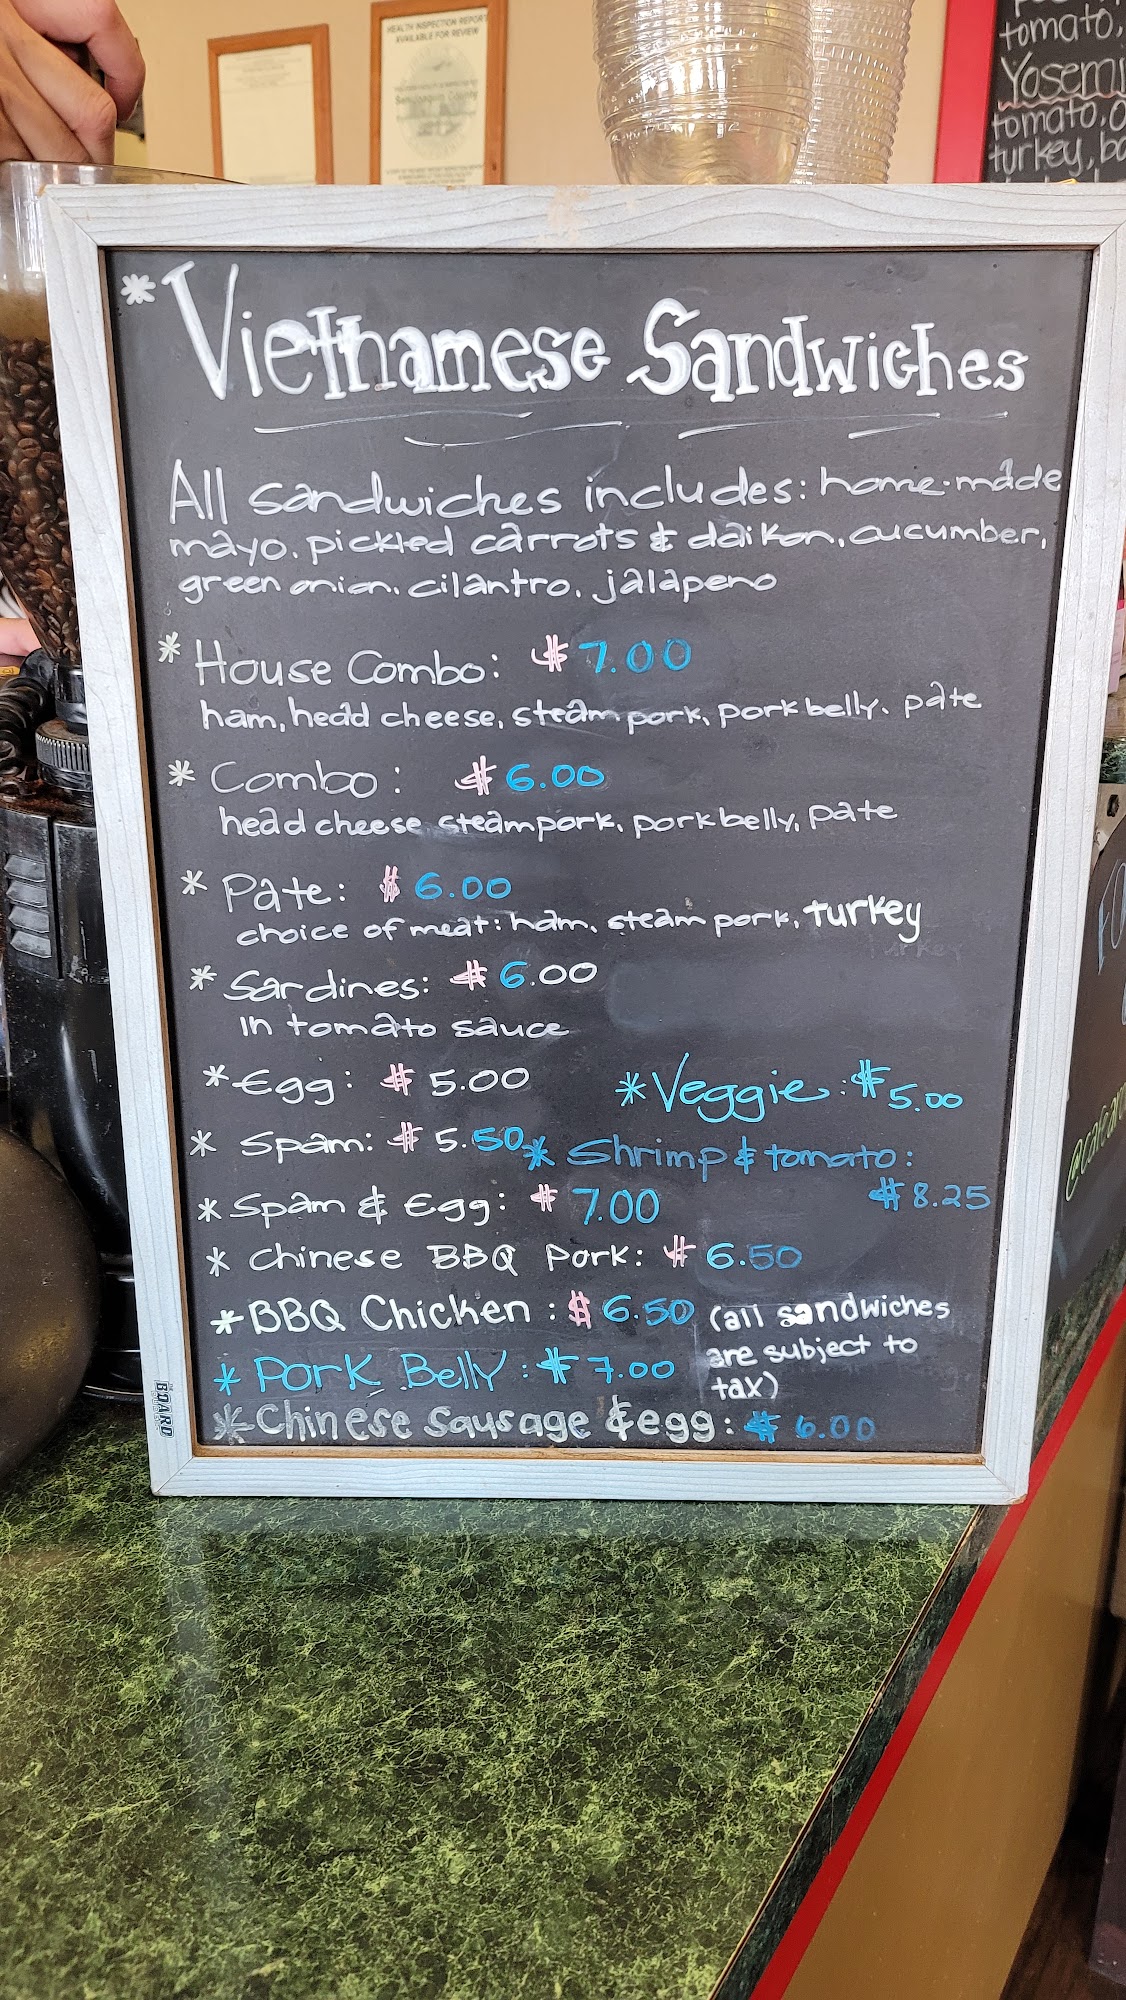 HEALTH INSPECTION REPORT
AVAILABLE FOR REVIEW
tomato,
Yosemi
tomato, o
turkey, ba
* Vietnamese Sandwiches
All sandwiches includes: home-made
mayo. pickled carrots & daikon, cucumber,
green onion. cilantro. jalapeno
* House Combo: $7.00
ham, head cheese, steam pork, pork belly. pate
* Combo: $6.00
head cheese steam pork, pork belly, pate
* Pate: $6.00
choice of meat: ham. steam pork, turkey
* Sardines: $6.00
in tomato sauce
* Egg: $5.00
* Veggie: $5.00
* Spam: $5.50
* Shrimp & tomato:
$8.25
* Spam & Egg: $7.00
* Chinese BBQ Pork: $6.50
* BBQ Chicken: $6.50
(all sandwiches
are subject to
tax)
* Pork Belly: $7.00
* Chinese Sausage & egg: $6.00
BOARD